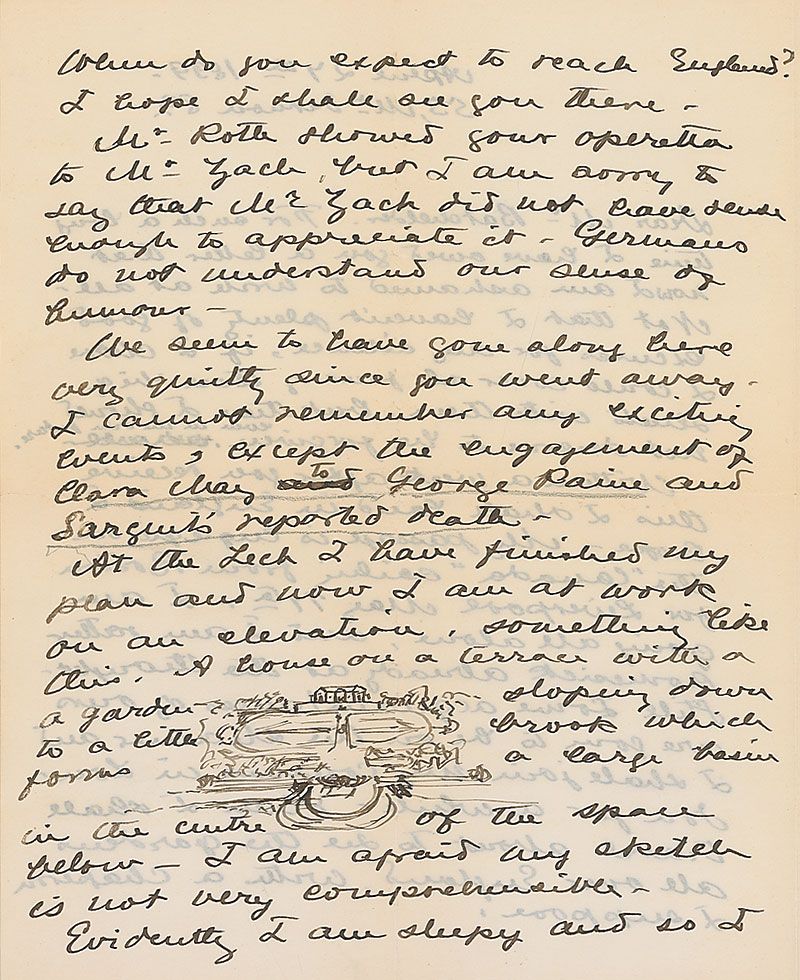 When do you expect to reach England?
I hope I shall see you there -
Mr Roth showed your operetta
to Mr Zach, but I am sorry to
say that Mr Zach did not have sense
enough to appreciate it - Germans
do not understand our sense of
humour -
We seem to have gone along here
very quietly since you went away.
I cannot remember any exciting
events, except the engagement of
Clara May to George Paine and
Sargent's reported death -
At the Tech I have finished my
plan and now I am at work
on an elevation, something like
this. A house on a terrace with a
a garden sloping down
to a little brook which
forms a large basin
in the centre of the space
below - I am afraid my sketch
is not very comprehensible -
Evidently I am sleepy and so I